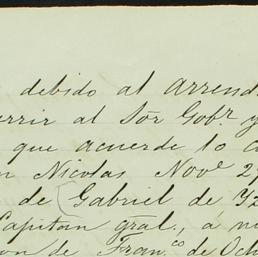 debido al arrend
errir al Sōr Gobr y
que acuerdo lo c
n Nicolas Nove 2
de Gabriel de Yz
Capitan gral., a n
on de Franco de Och